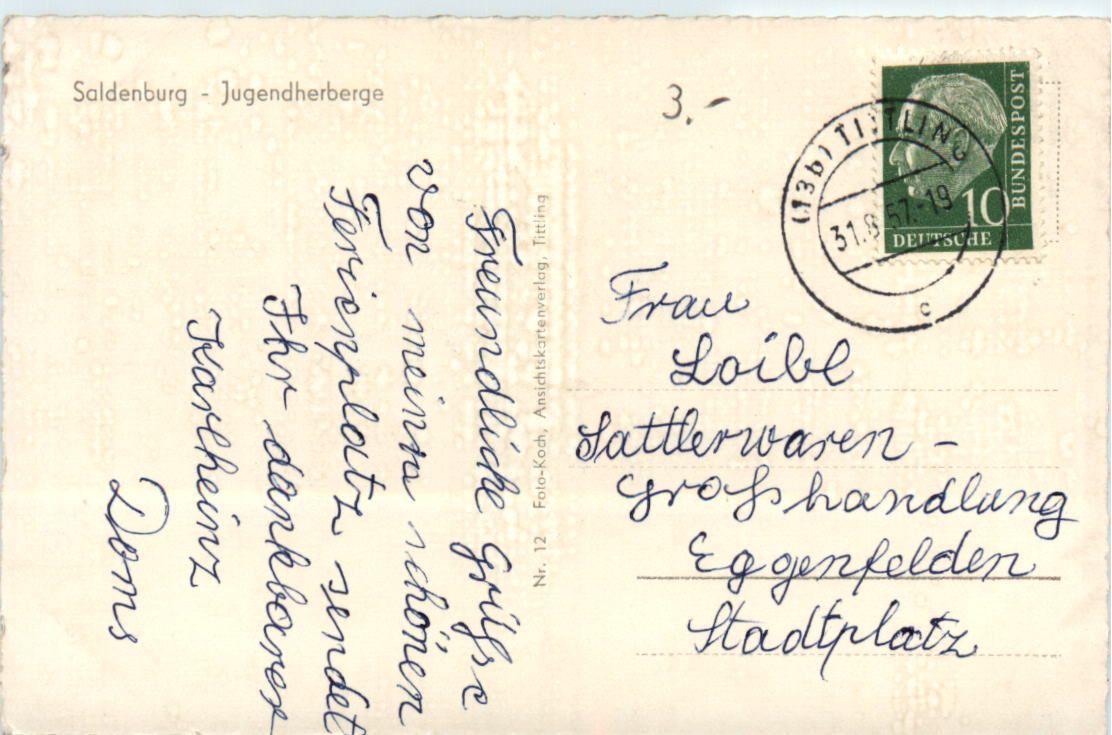 Saldenburg - Jugendherberge
3.-
(13b) TITTLING
31.8.57.-19
c
10
DEUTSCHE
BUNDESPOST
Freundliche Grüße
von meinen schönen
Ferienplatz sendet
Ihr dankbarer
Karlheinz
Doms
Nr. 12 Foto-Koch, Ansichtskartenverlag, Tittling
Frau
Loibl
Sattlerwaren -
Großhandlung
Eggenfelden
Stadtplatz